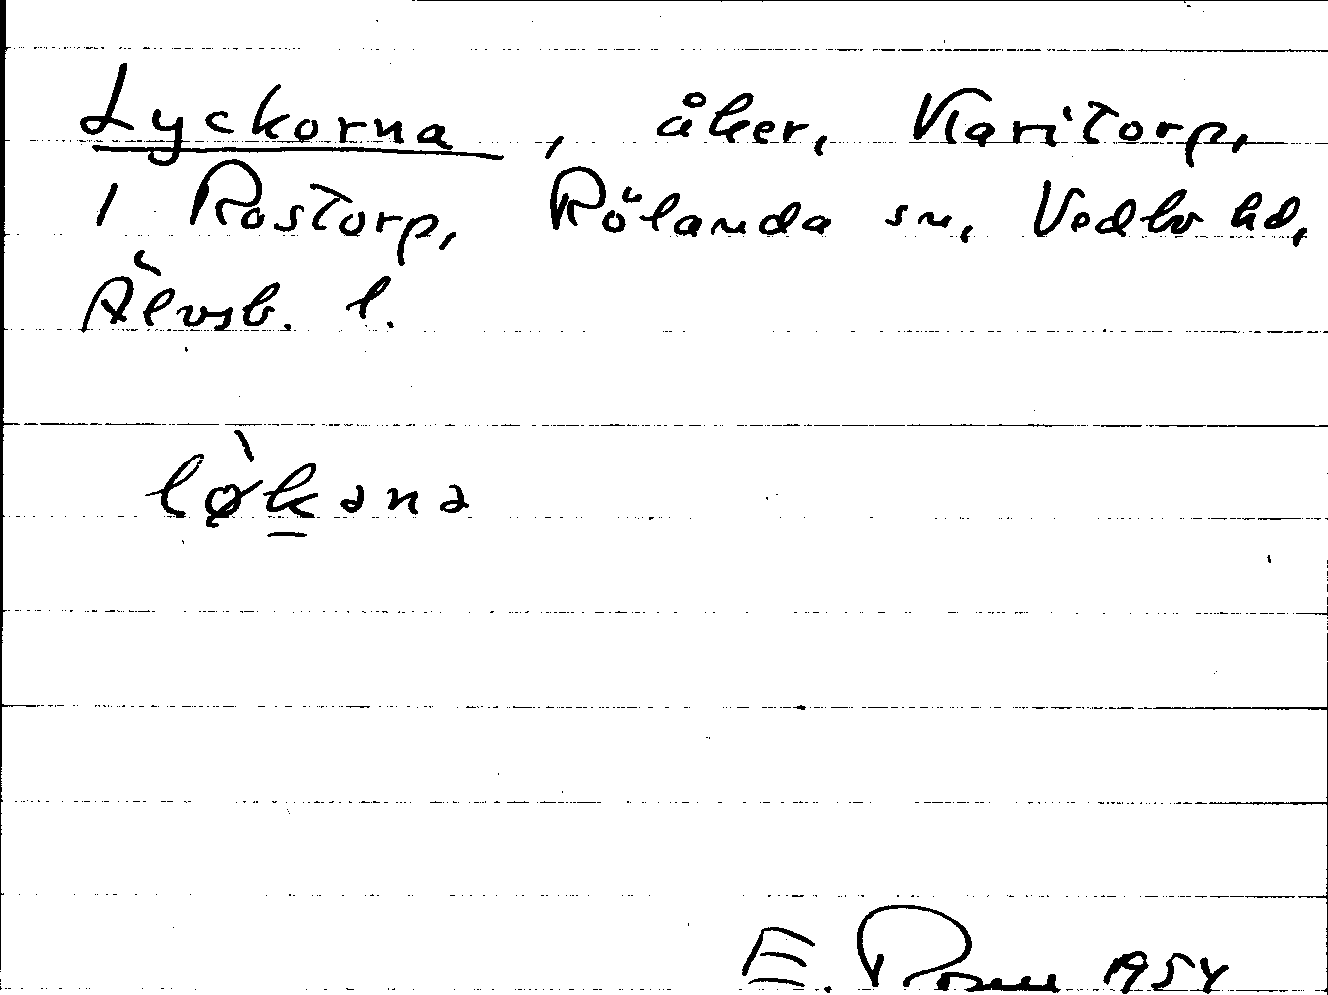 Lyckorna, åker, Karitorp,
1 Rostorp, Rölanda sn, Vedbo hd,
Älvsb. l.
lø̀kənə
E. 1954